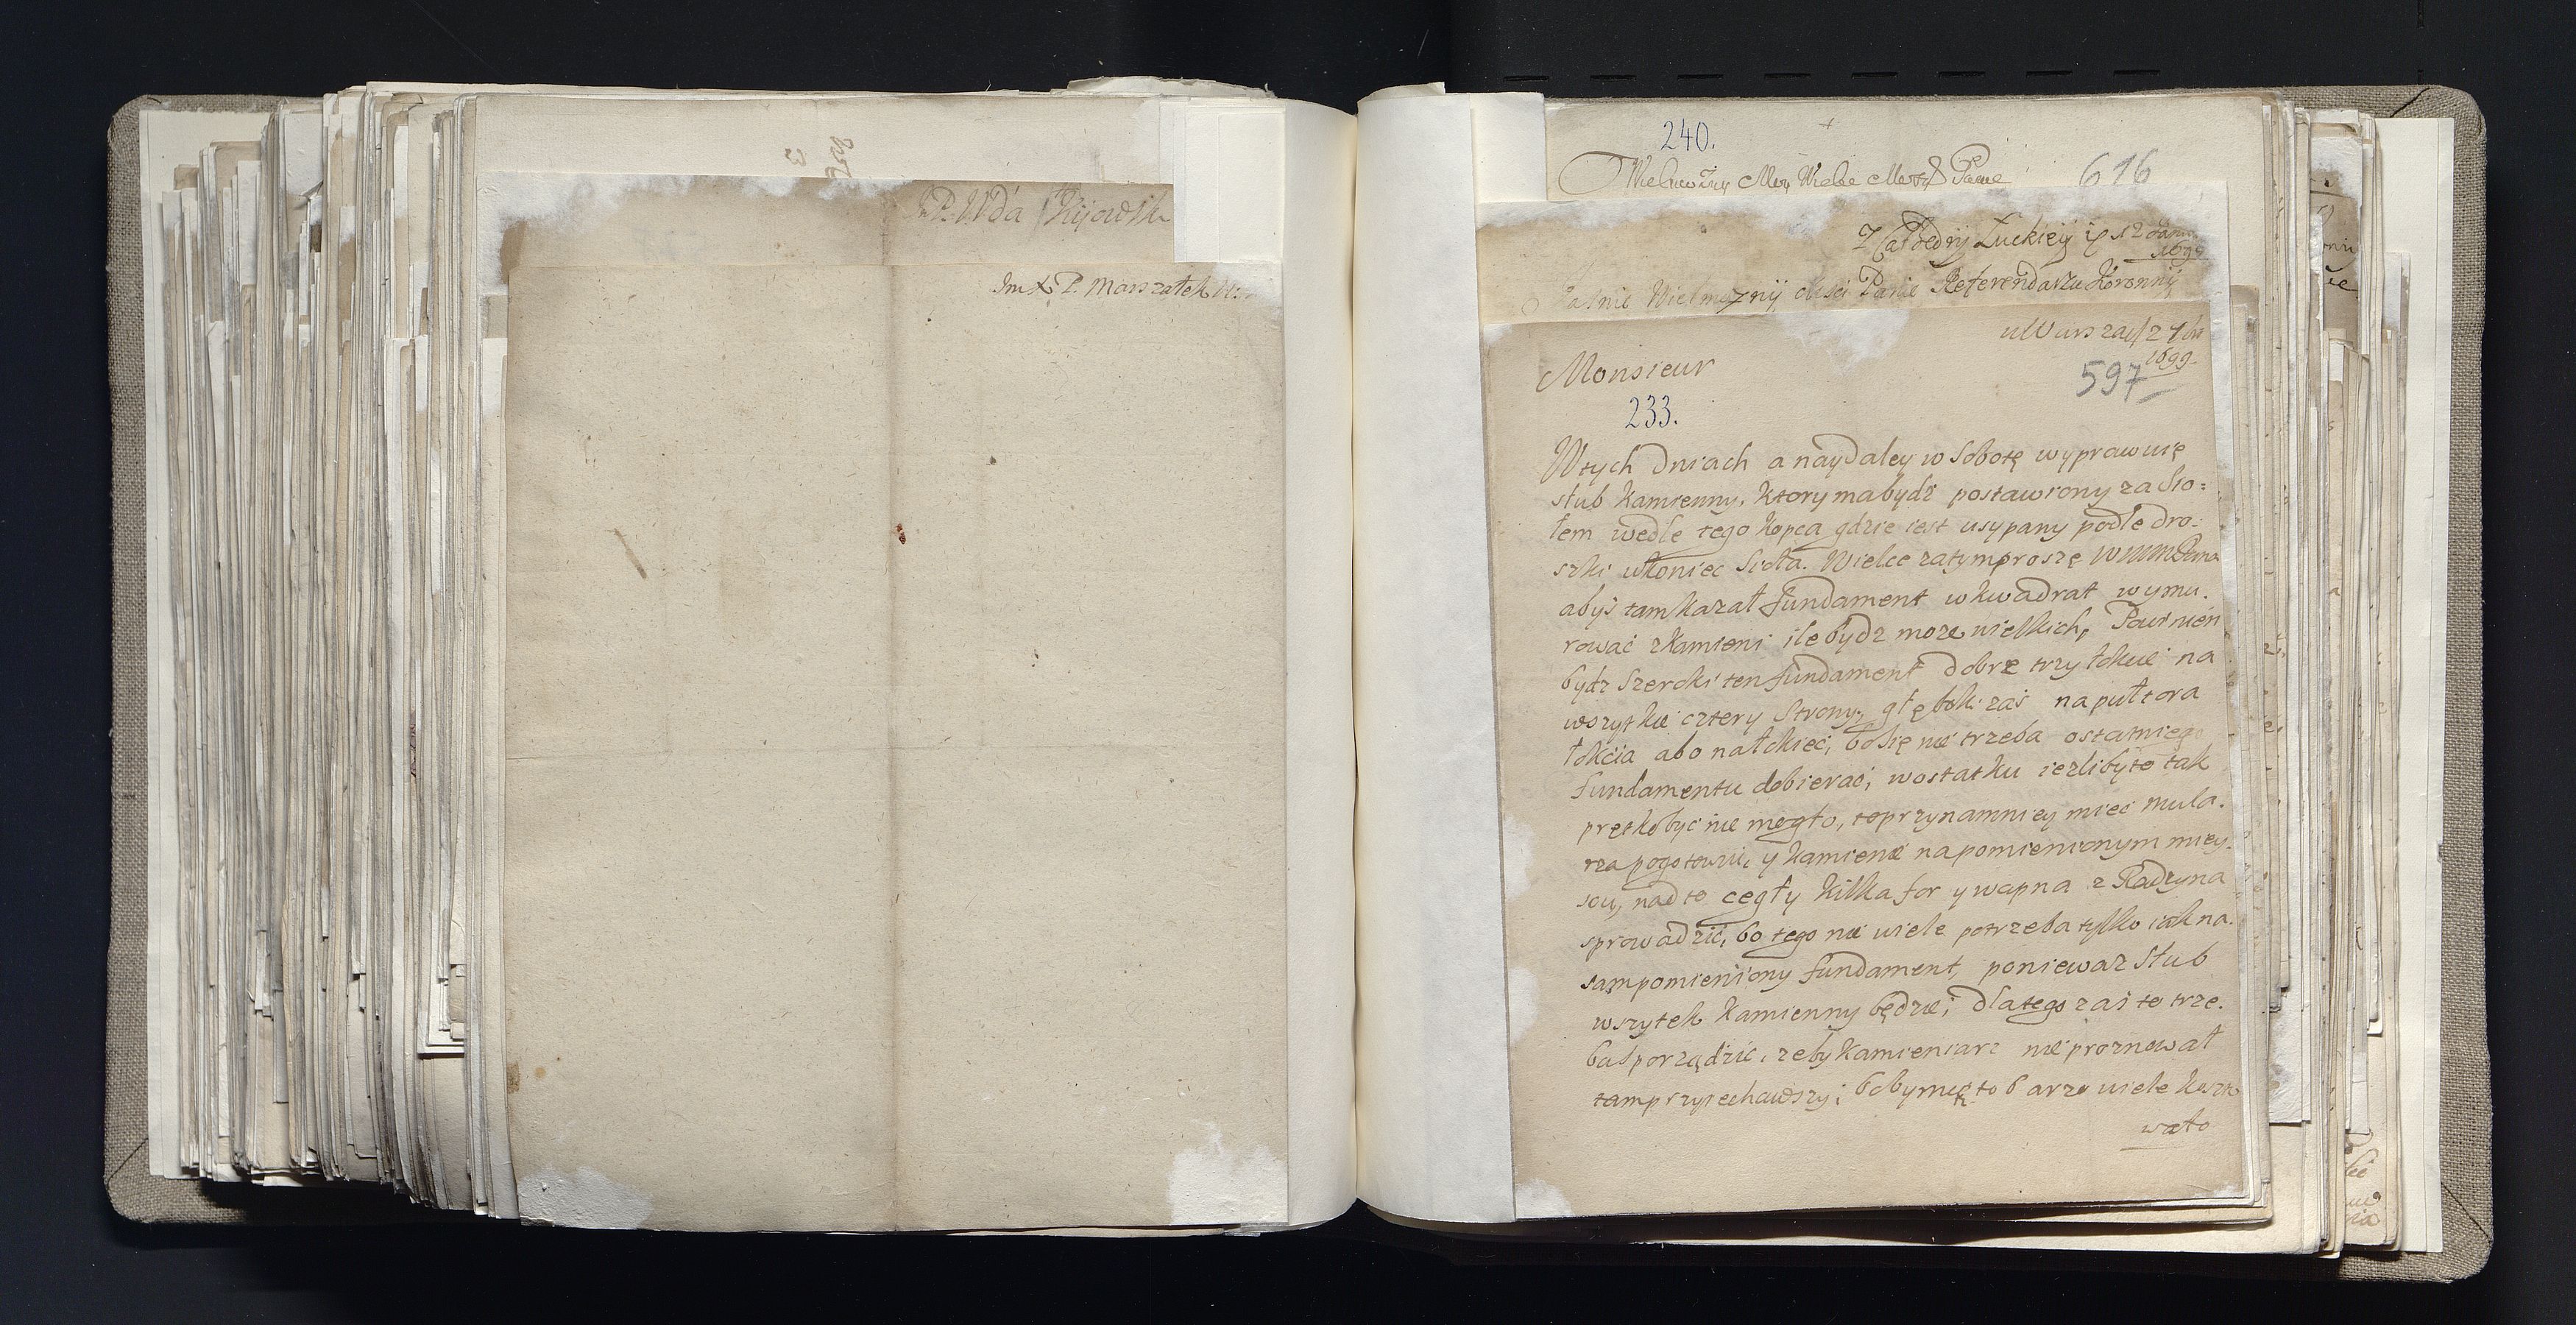 J.P. W.da Kijowsk
Im X P. Marszałek
240.
Wielmożny Moy Wielce Mości Panie
616
Z Katedry Łuckiey 12
1699
Jaśnie Wielmożny Mości Panie Referendarzu Koronny
w Warszaw 2
1699
Monsieur
597
233.
W tych dniach a naydaley w Sobotę wyprawuię
słub kamienny, ktory ma bydź postawiony za Sio=
łem wedle tego kopca gdzie iest usypany podle dro=
szki w koniec Sioła. Wielce zatym proszę WMM Pana
abyś tam kazał fundament w kwadrat wymu.
rować z kamieni ile bydz moze wielkich, Powinien
bydz szeroki ten fundament dobrze trzy łokcie na
wszytkie cztery strony, głęboki zaś na pułtora
łokcia abo na łokieć, bo się nie trzeba ostatniego
fundamentu dobierać, w ostatku iezliby to tak
prętko być nie mogło, to przynamniey mieć mula.
rza pogotowiu, y kamienie na pomienionym miey.
scu, nad to cegły kilka for y wapna z Radzyna
sprowadzić, bo tego nie wiele potrzeba tylko iak na
sam pomieniony fundament, poniewaz słub
wszytek kamienny będzie; dlatego zaś to trze.
ba sporządzić, zeby kamieniarz nie proznował
tam przyiechawszy; boby mię to barzo wiele koszto
wało